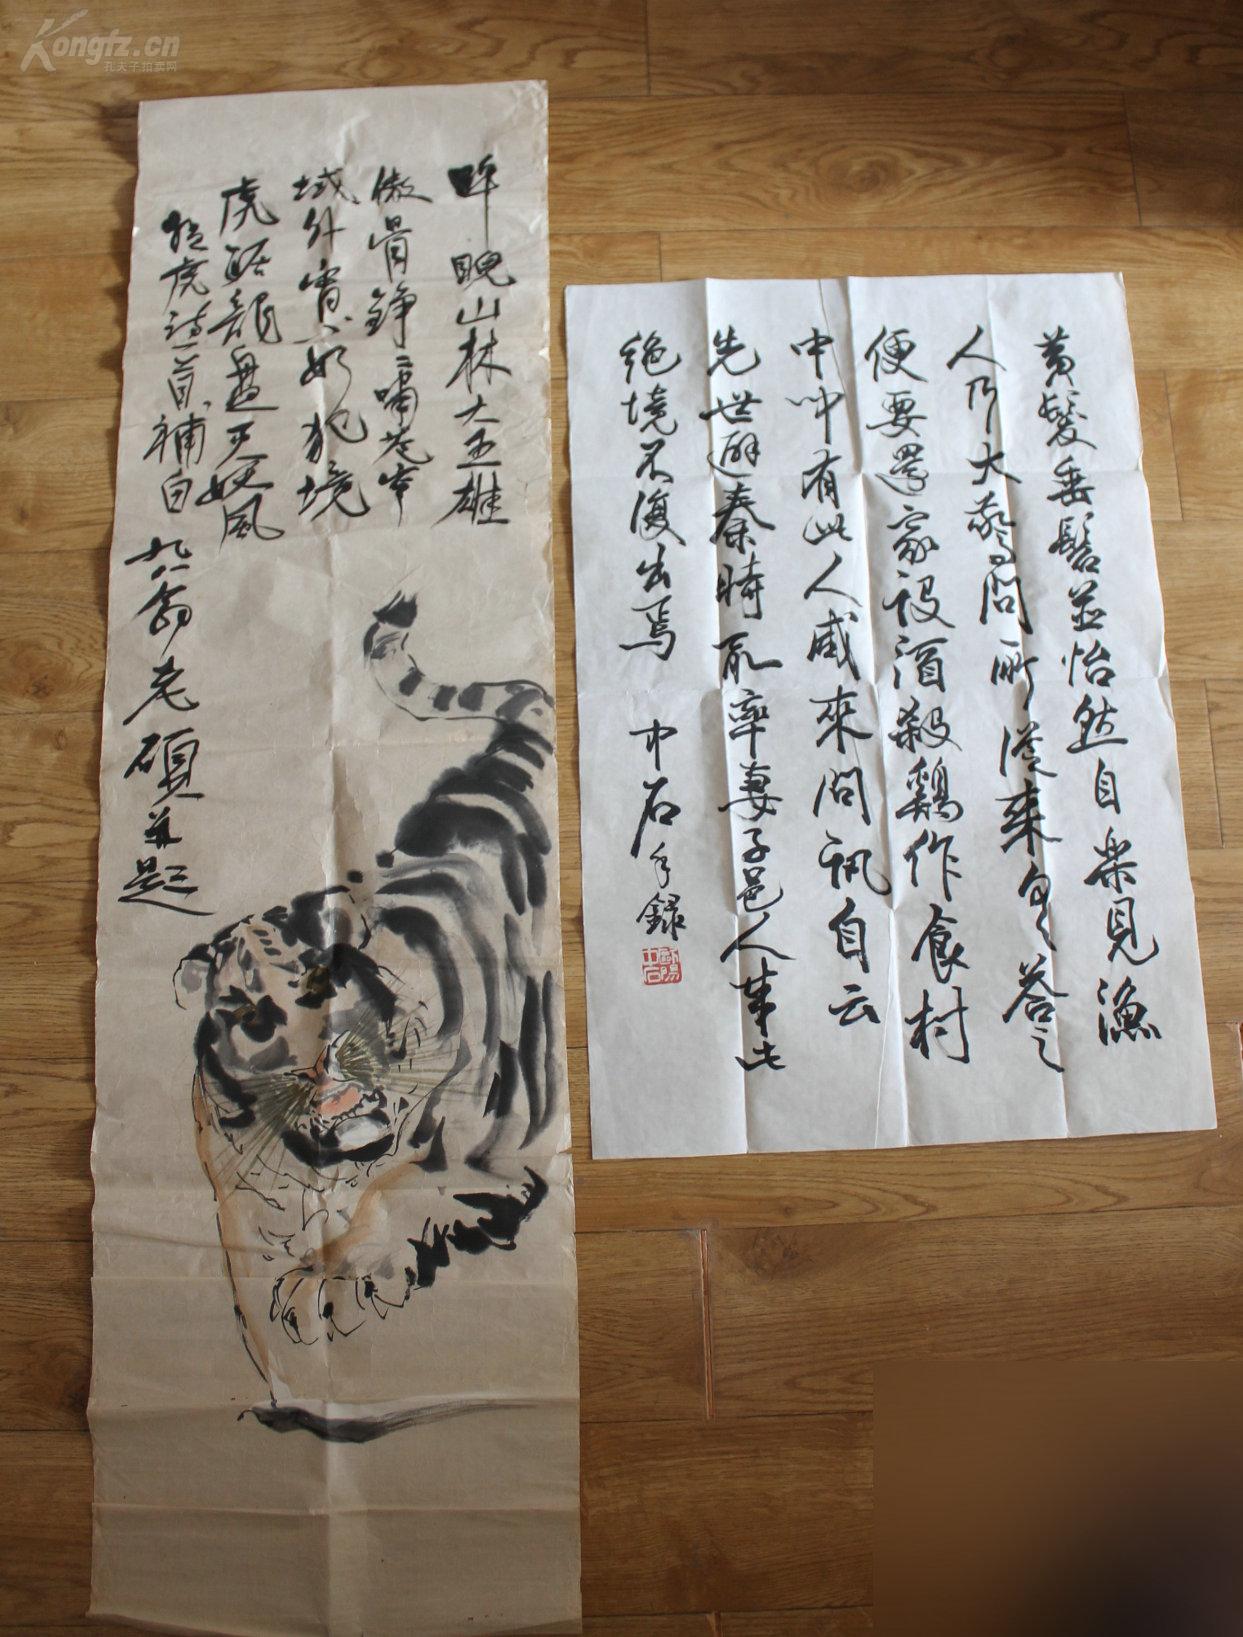 Kongfz.cn
孔夫子拍卖网
睥睨山林大王雄
傲骨铮〻啸苍穹
域外宵小如犯境
虎踞龍盘灭妖風
题虎诗一首補白
老硕并题
黄髮垂髫並怡然自樂見漁
人乃大驚問所從來具答之
便要還家设酒殺鷄作食村
中聞有此人咸來問訊自云
先世避秦時亂率妻子邑人來此
绝境不復出焉
中石手録
歐陽中石